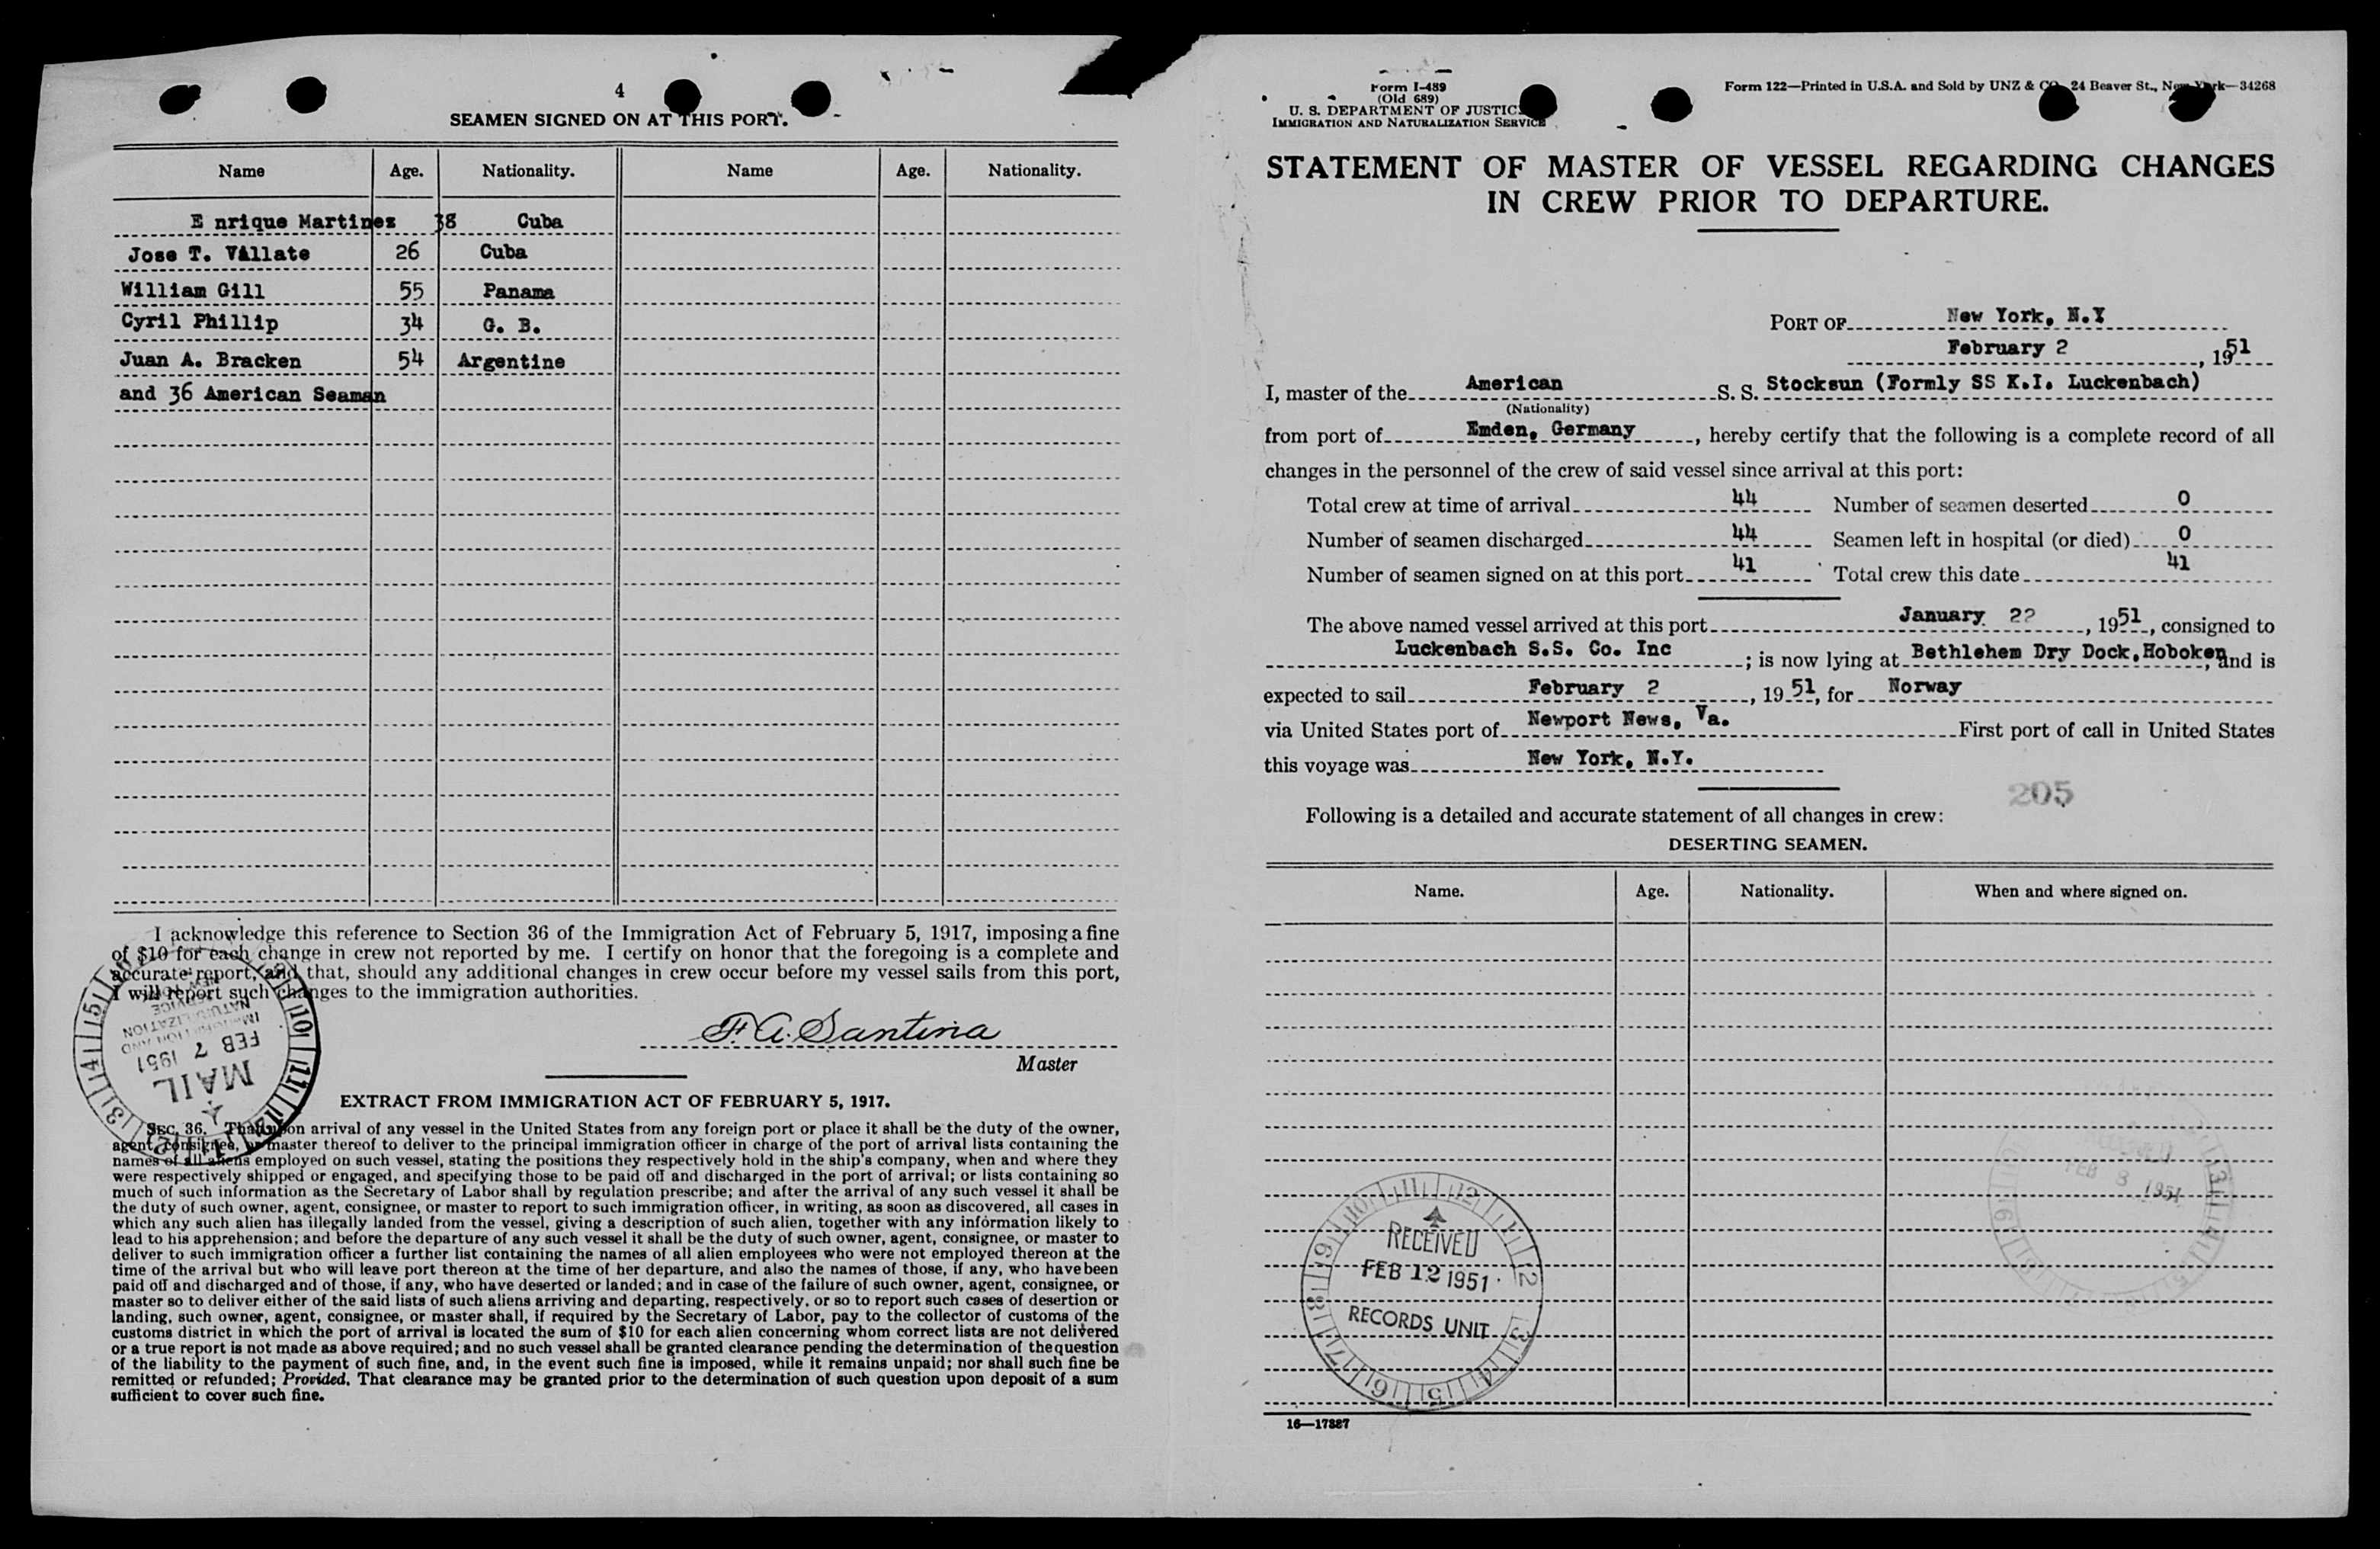 4
SEAMEN SIGNED ON AT THIS PORT.
Name Age. Nationality. Name Age. Nationality.
E nrique Martines 38 Cuba
Jose T. Vallate 26 Cuba
William Gill 55 Panama
Cyril Phillip 34 G. B.
Juan A. Bracken 54 Argentine
and 36 American Seaman
I acknowledge this reference to Section 36 of the Immigration Act of February 5, 1917, imposing a fine
of $10 for each change in crew not reported by me. I certify on honor that the foregoing is a complete and
accurate report, and that, should any additional changes in crew occur before my vessel sails from this port,
I will report such changes to the immigration authorities.
F. A. Santina
Master
IMMIGRATION AND
NATURALIZATION
SERVICE
FEB 7 1951
MAIL
EXTRACT FROM IMMIGRATION ACT OF FEBRUARY 5, 1917.
SEC. 36. That upon arrival of any vessel in the United States from any foreign port or place it shall be the duty of the owner,
agent, consignee, or master thereof to deliver to the principal immigration officer in charge of the port of arrival lists containing the
names of all aliens employed on such vessel, stating the positions they respectively hold in the ship's company, when and where they
were respectively shipped or engaged, and specifying those to be paid off and discharged in the port of arrival; or lists containing so
much of such information as the Secretary of Labor shall by regulation prescribe; and after the arrival of any such vessel it shall be
the duty of such owner, agent, consignee, or master to report to such immigration officer, in writing, as soon as discovered, all cases in
which any such alien has illegally landed from the vessel, giving a description of such alien, together with any information likely to
lead to his apprehension; and before the departure of any such vessel it shall be the duty of such owner, agent, consignee, or master to
deliver to such immigration officer a further list containing the names of all alien employees who were not employed thereon at the
time of the arrival but who will leave port thereon at the time of her departure, and also the names of those, if any, who have been
paid off and discharged and of those, if any, who have deserted or landed; and in case of the failure of such owner, agent, consignee, or
master so to deliver either of the said lists of such aliens arriving and departing, respectively, or so to report such cases of desertion or
landing, such owner, agent, consignee, or master shall, if required by the Secretary of Labor, pay to the collector of customs of the
customs district in which the port of arrival is located the sum of $10 for each alien concerning whom correct lists are not delivered
or a true report is not made as above required; and no such vessel shall be granted clearance pending the determination of the question
of the liability to the payment of such fine, and, in the event such fine is imposed, while it remains unpaid; nor shall such fine be
remitted or refunded; Provided, That clearance may be granted prior to the determination of such question upon deposit of a sum
sufficient to cover such fine.
Form I-489
(Old 689)
U. S. DEPARTMENT OF JUSTICE
IMMIGRATION AND NATURALIZATION SERVICE
Form 122—Printed in U.S.A. and Sold by UNZ & CO. 24 Beaver St., New York—34268
STATEMENT OF MASTER OF VESSEL REGARDING CHANGES
IN CREW PRIOR TO DEPARTURE.
PORT OF New York, N.Y
February 2, 1951
I, master of the American S. S. Stocksun (Formly SS K.I. Luckenbach)
(Nationality)
from port of Emden, Germany, hereby certify that the following is a complete record of all
changes in the personnel of the crew of said vessel since arrival at this port:
Total crew at time of arrival 44 Number of seamen deserted 0
Number of seamen discharged 44 Seamen left in hospital (or died) 0
Number of seamen signed on at this port 41 Total crew this date 41
The above named vessel arrived at this port January 22, 1951, consigned to
Luckenbach S.S. Co. Inc; is now lying at Bethlehem Dry Dock, Hoboken, and is
expected to sail February 2, 1951, for Norway
via United States port of Newport News, Va. First port of call in United States
this voyage was New York, N.Y.
205
Following is a detailed and accurate statement of all changes in crew:
DESERTING SEAMEN.
Name. Age. Nationality. When and where signed on.
RECEIVED
FEB 12 1951
RECORDS UNIT
RECEIVED
FEB 8 1951
16—17887